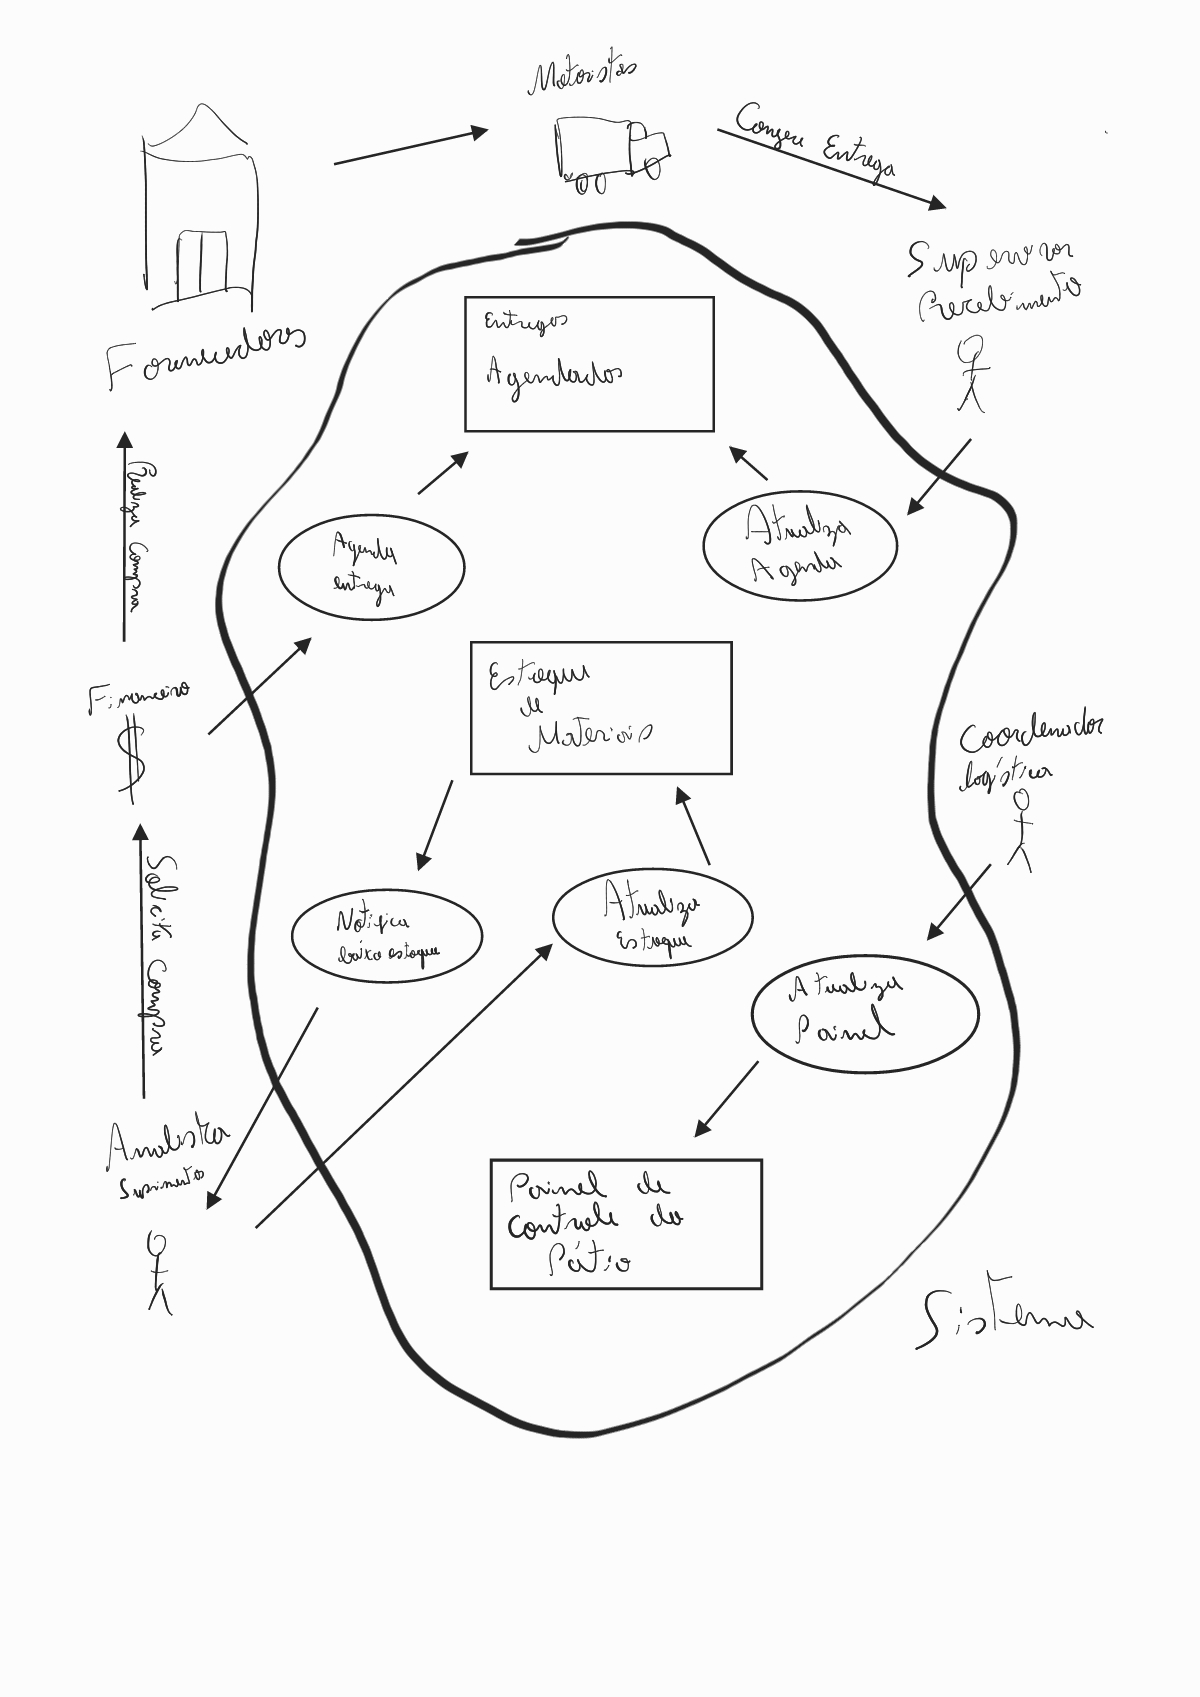 Motoristas
Entrega
Supervisor
Recebimento
Fornecedores
Entregas
Agendadas
Realiza Compra
Agenda
entrega
Atualiza
Agenda
Financeiro
$
Estoque
de
Materiais
Coordenador
logística
Solicita Compra
Notifica
baixo estoque
Atualiza
Estoque
Atualiza
Painel
Analista
Suprimento
Painel de
Controle do
Pátio
Sistema